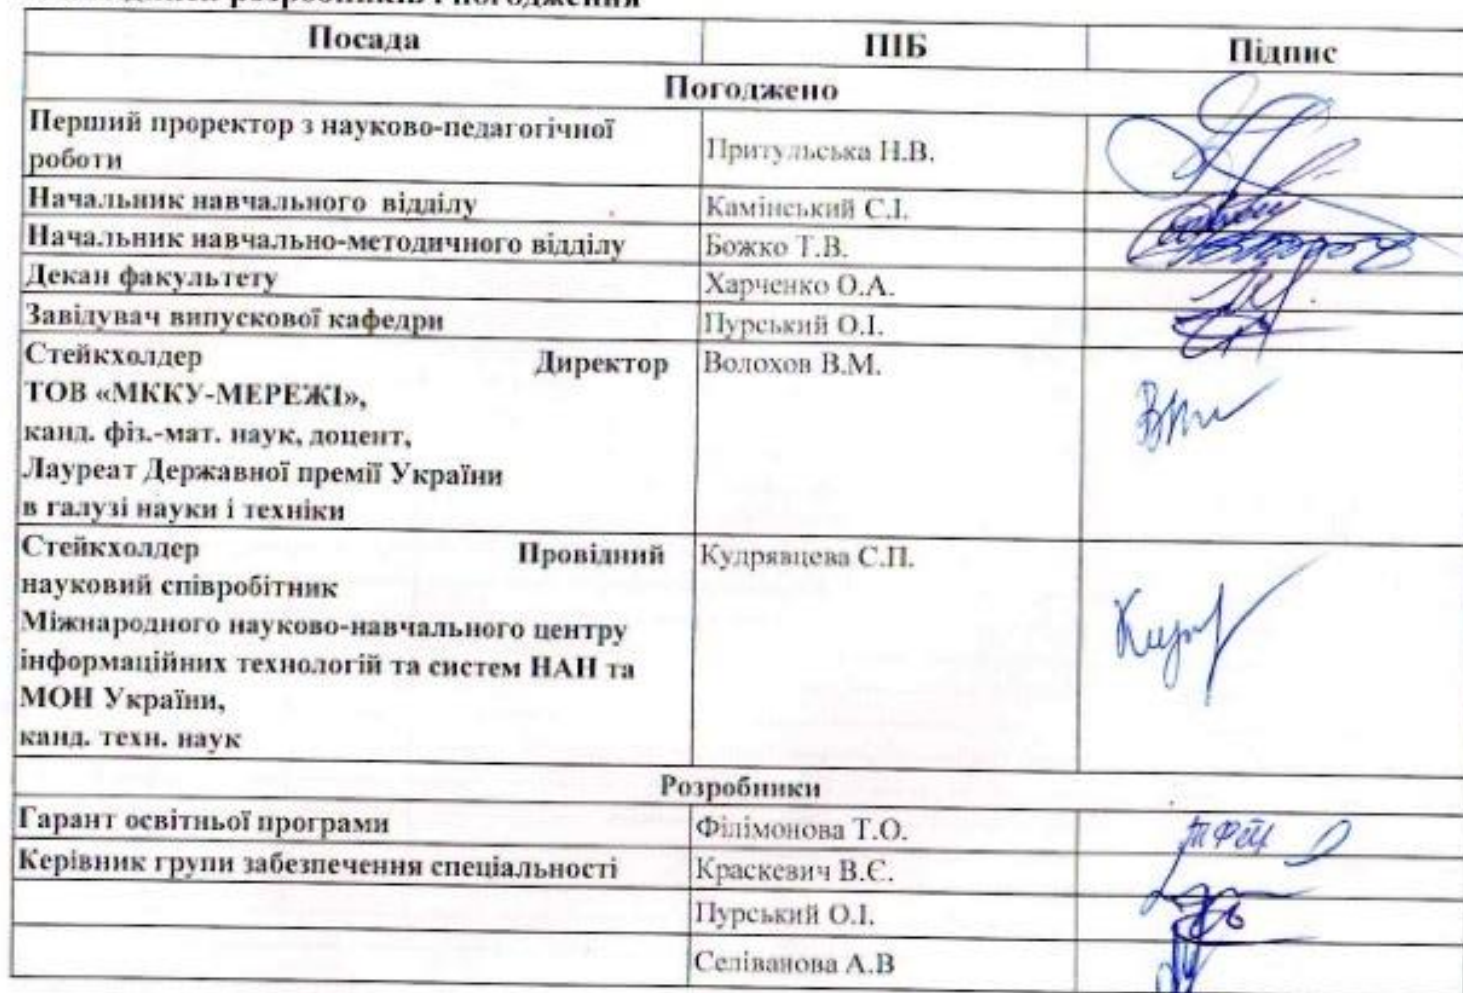 розробників і погодження
Посада ПІБ Підпис
Погоджено
Перший проректор з науково-педагогічної
роботи
Притульська Н.В.
Начальник навчального відділу Камінський С.І.
Начальник навчально-методичного відділу Божко Т.В.
Декан факультету Харченко О.А.
Завідувач випускової кафедри Пурський О.І.
Стейкхолдер Директор Волохов В.М.
ТОВ «МККУ-МЕРЕЖІ»,
канд. фіз.-мат. наук, доцент,
Лауреат Державної премії України
в галузі науки і техніки
Стейкхолдер Провідний Кудрявцева С.П.
науковий співробітник
Міжнародного науково-навчального центру
інформаційних технологій та систем НАН та
МОН України,
канд. техн. наук
Розробники
Гарант освітньої програми Філімонова Т.О.
Керівник групи забезпечення спеціальності Краскевич В.Є.
Пурський О.І.
Селіванова А.В